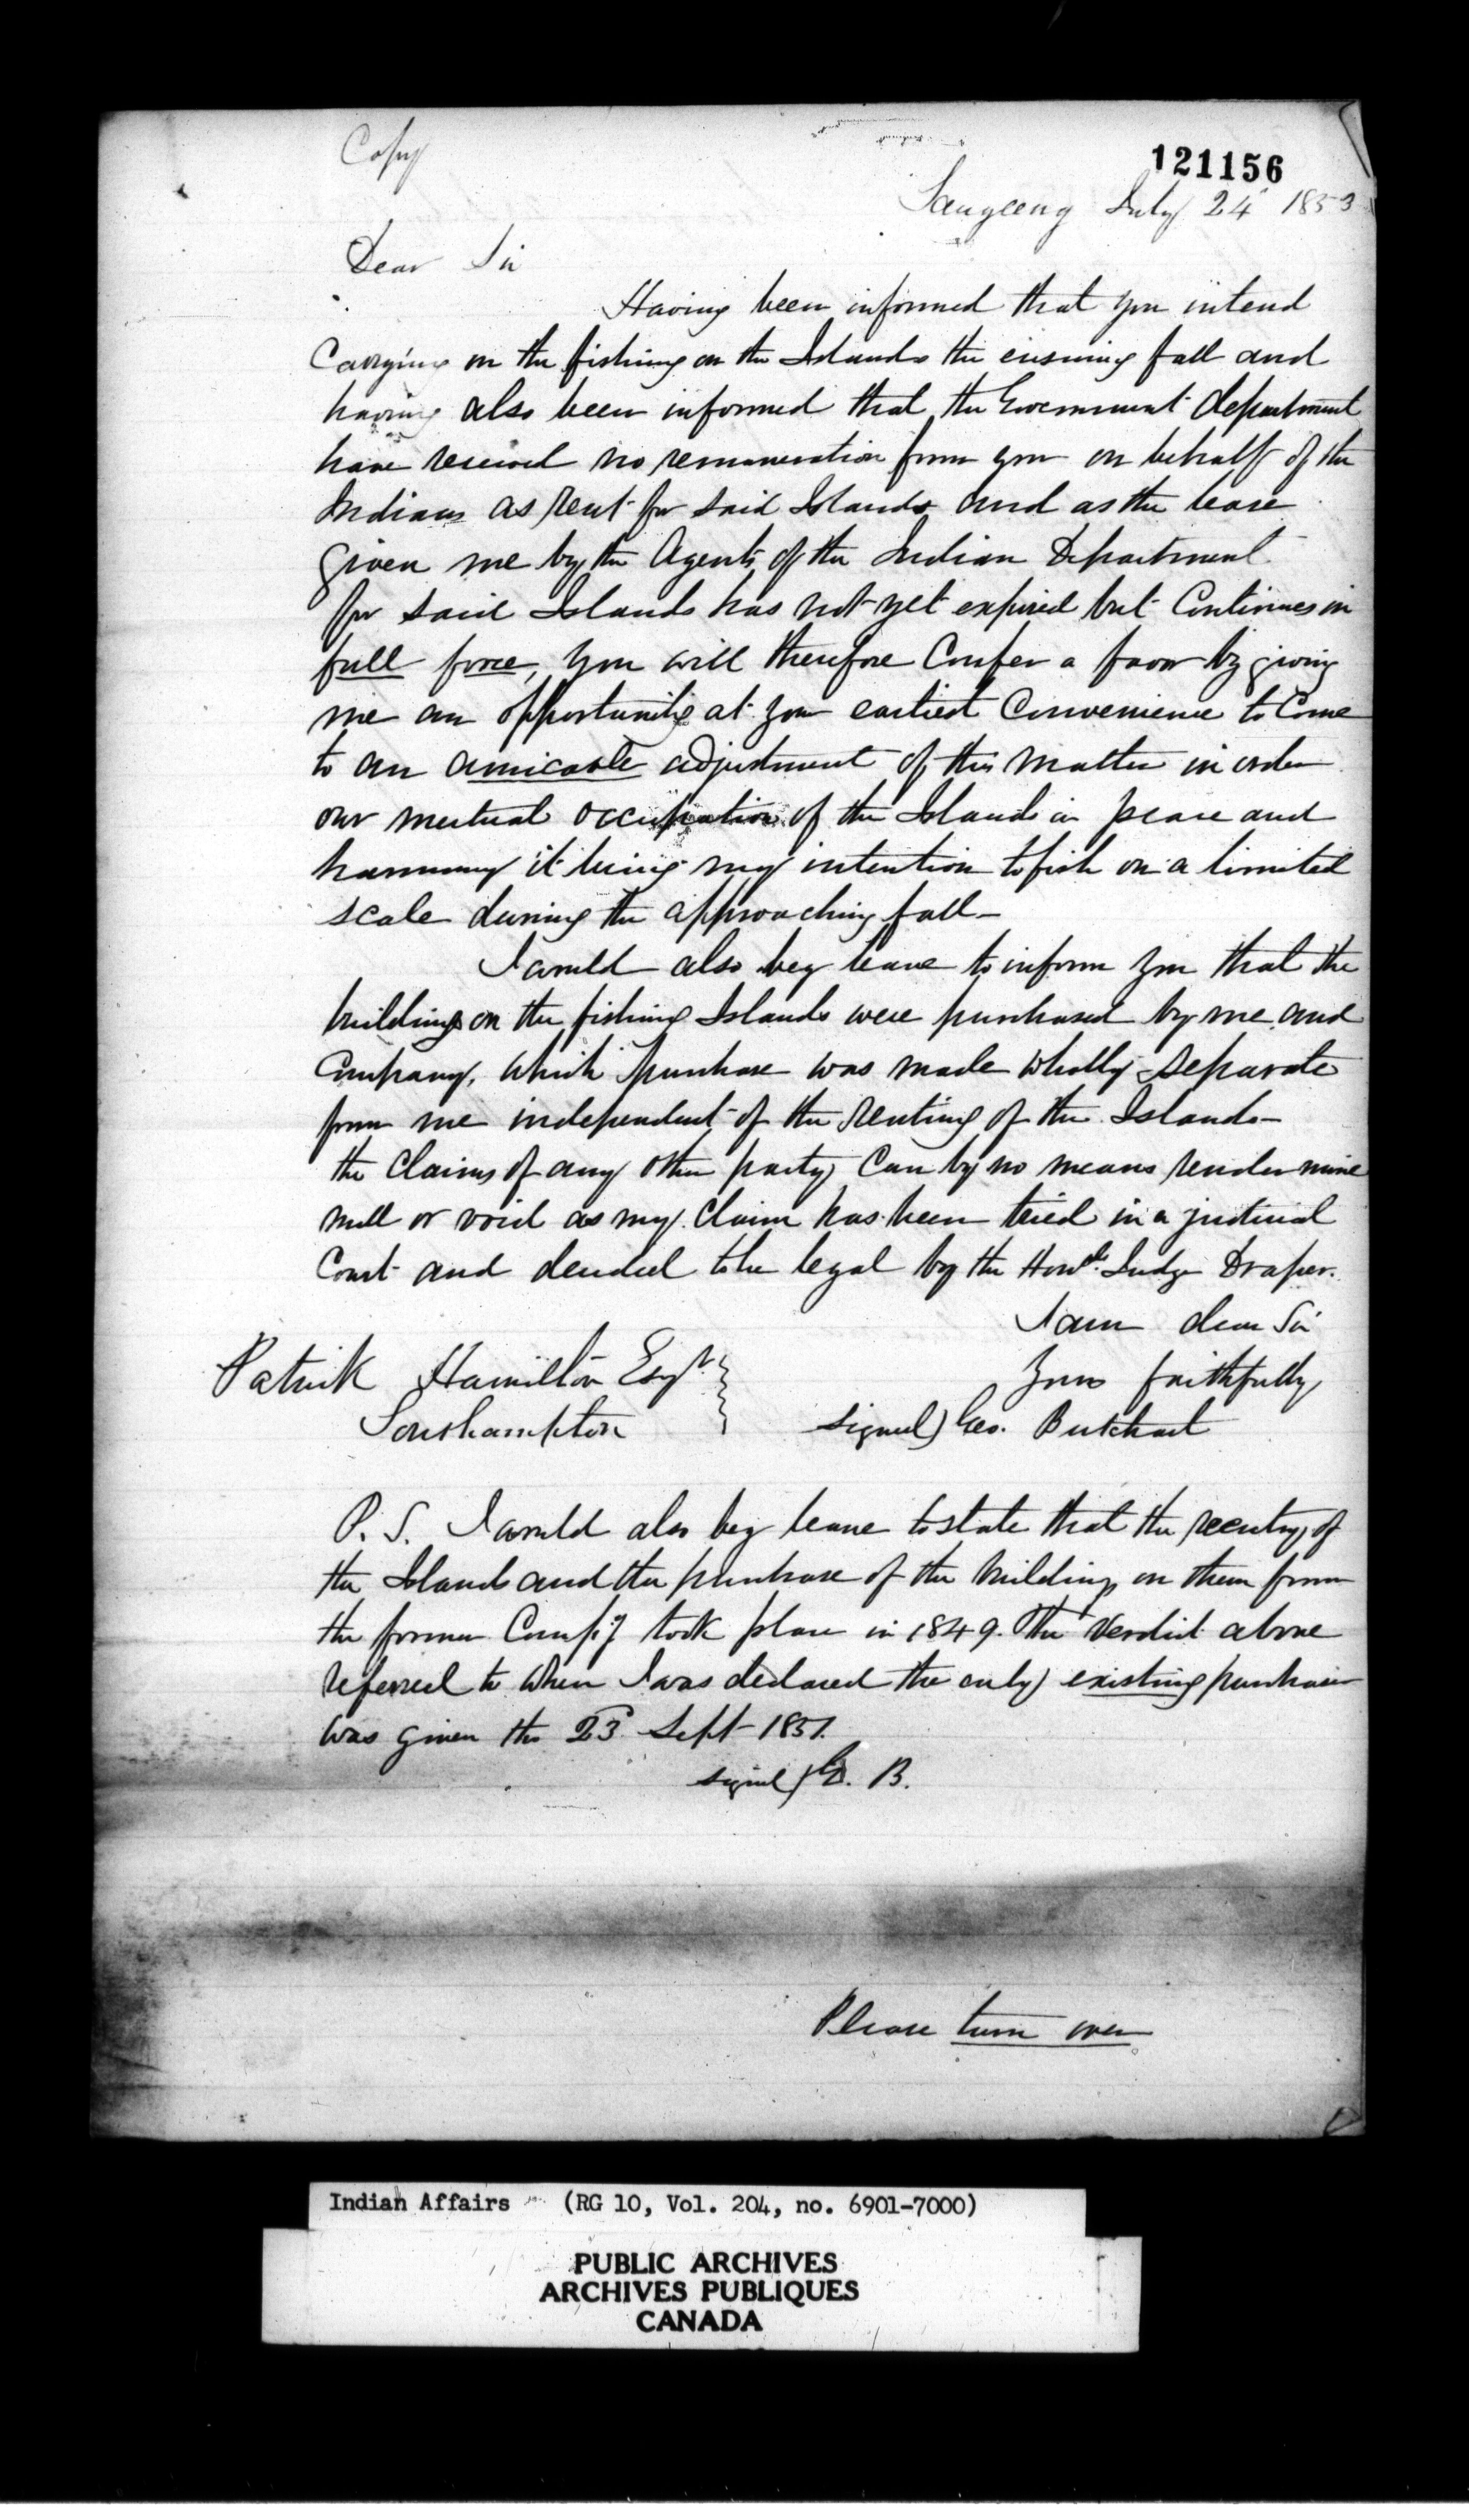 Copy
121156
Saugeeng July 24 1853
Dear Sir
Having been informed that you intend
Carrying on the fishing on the Islands the ensuing fall and
having also been informed that the Government department
have received no remuneration from you on behalf of the
Indians as rent for said Islands and as the lease
given me by the Agents of the Indian Department
for said Islands has not yet expired but Continues in
full force, you will therefore Confer a favor by giving
me an opportunity at your earliest Convenience to Come
to an amicable adjustment of this matter in order
our mutual occupation of the Islands in peace and
harmony it being my intention to fish on a limited
scale during the approaching fall—
I would also beg leave to inform you that the
buildings on the fishing Islands were purchased by me and
Company, which purchase was made wholly separate
from me independent of the renting of the Islands—
the Claims of any other party Can by no means render mine
null or void as my Claim has been tried in a judicial
Court and decided to be legal by the Honble. Judge Draper.
I am dear Sir
Patrick Hamilton Esqr.
Yours faithfully
Southampton
signed) Geo. Butchart
P. S. I would also beg leave to state that the of
the Islands and the purchase of the buildings on them from
the former Compy took place in 1849. The Verdict above
referred to when I was declared the only existing purchaser
was given the 23d Sept 1851.
signed) G. B.
Please turn over
Indian Affairs (RG 10, Vol. 204, no. 6901-7000)
PUBLIC ARCHIVES
ARCHIVES PUBLIQUES
CANADA